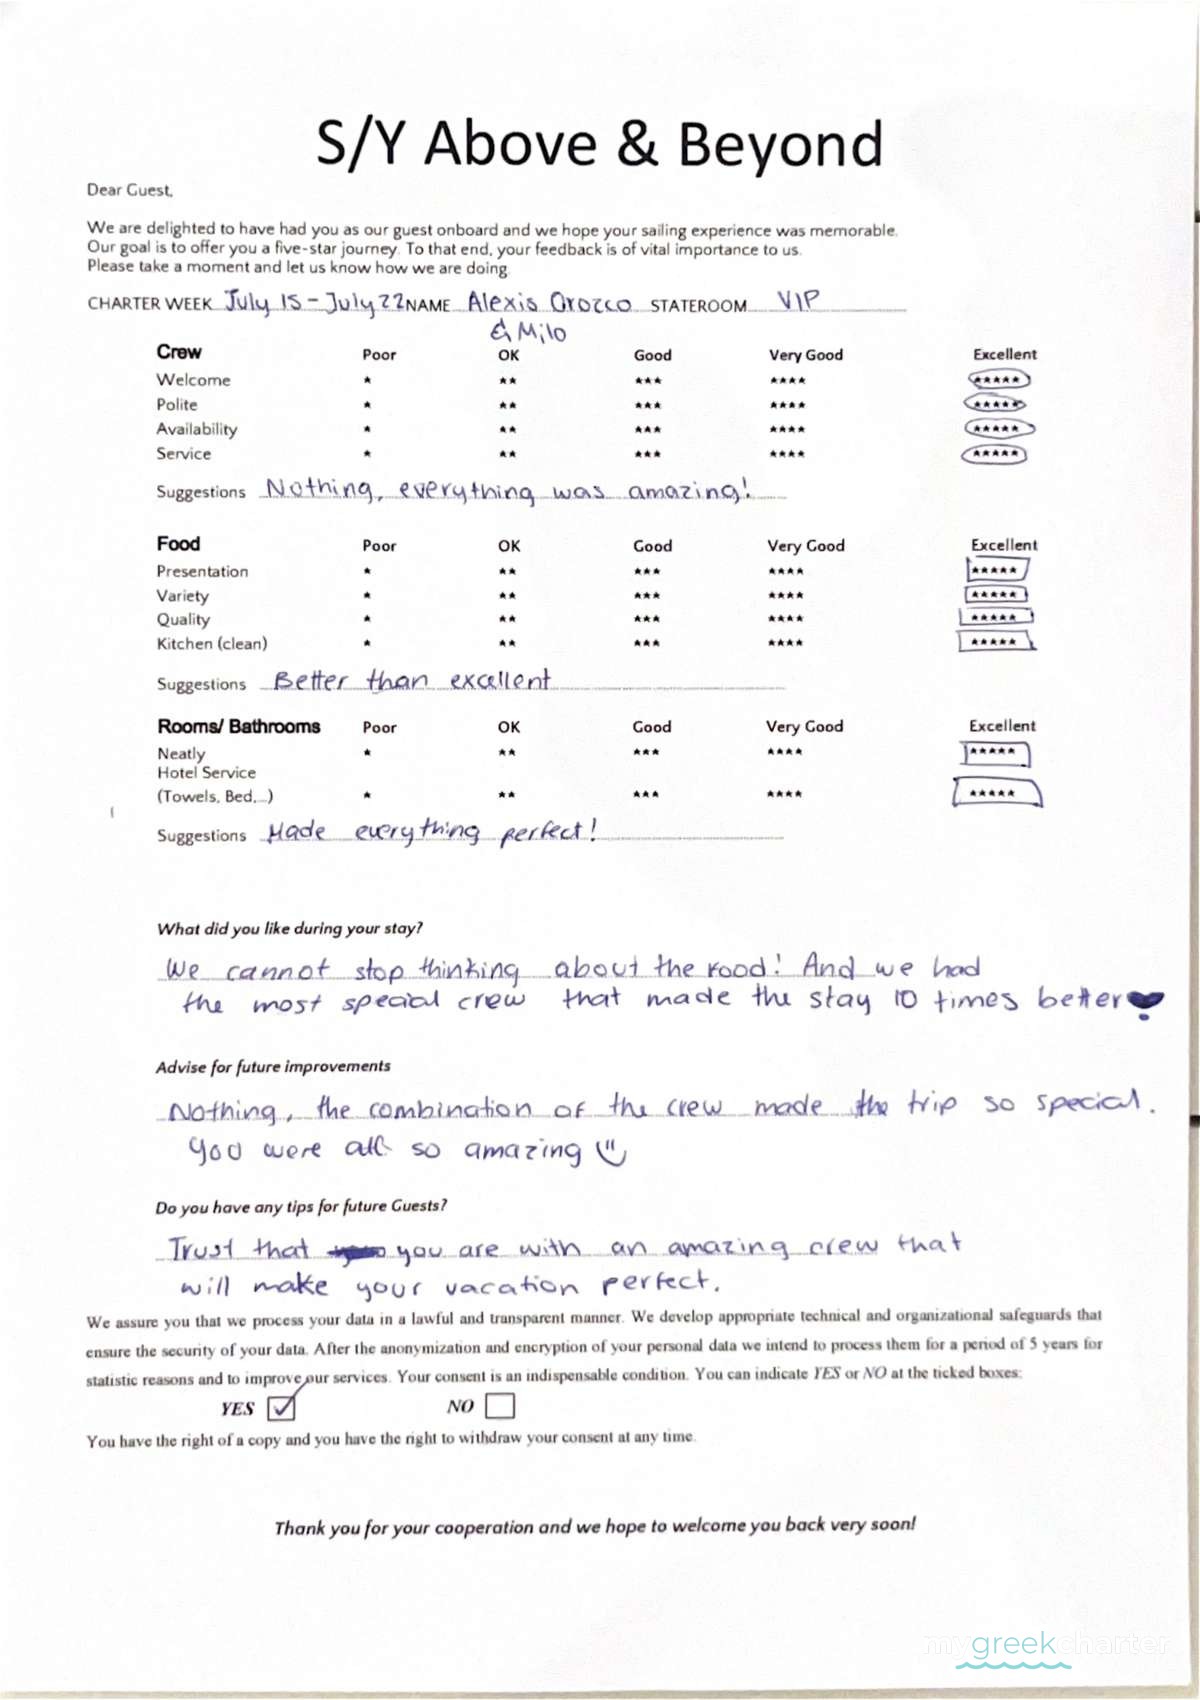 S/Y Above & Beyond
Dear Guest,
We are delighted to have had you as our guest onboard and we hope your sailing experience was memorable.
Our goal is to offer you a five-star journey. To that end, your feedback is of vital importance to us.
Please take a moment and let us know how we are doing.
CHARTER WEEK July 15 - July 22 NAME Alexis Orozco STATEROOM VIP
& Milo
Crew Poor OK Good Very Good Excellent
Welcome ★ ★★ ★★★ ★★★★ ★★★★★
Polite ★ ★★ ★★★ ★★★★ ★★★★★
Availability ★ ★★ ★★★ ★★★★ ★★★★★
Service ★ ★★ ★★★ ★★★★ ★★★★★
Suggestions Nothing, everything was amazing!
Food Poor OK Good Very Good Excellent
Presentation ★ ★★ ★★★ ★★★★ ★★★★★
Variety ★ ★★ ★★★ ★★★★ ★★★★★
Quality ★ ★★ ★★★ ★★★★ ★★★★★
Kitchen (clean) ★ ★★ ★★★ ★★★★ ★★★★★
Suggestions Better than excellent
Rooms/ Bathrooms Poor OK Good Very Good Excellent
Neatly ★ ★★ ★★★ ★★★★ ★★★★★
Hotel Service
(Towels, Bed,...) ★ ★★ ★★★ ★★★★ ★★★★★
Suggestions Made everything perfect!
What did you like during your stay?
We cannot stop thinking about the food! And we had
the most special crew that made the stay 10 times better
Advise for future improvements
Nothing, the combination of the crew made the trip so special.
You were all so amazing
Do you have any tips for future Guests?
Trust that you are with an amazing crew that
will make your vacation perfect.
We assure you that we process your data in a lawful and transparent manner. We develop appropriate technical and organizational safeguards that
ensure the security of your data. After the anonymization and encryption of your personal data we intend to process them for a period of 5 years for
statistic reasons and to improve our services. Your consent is an indispensable condition. You can indicate YES or NO at the ticked boxes:
YES NO
You have the right of a copy and you have the right to withdraw your consent at any time.
Thank you for your cooperation and we hope to welcome you back very soon!
mygreekcharter